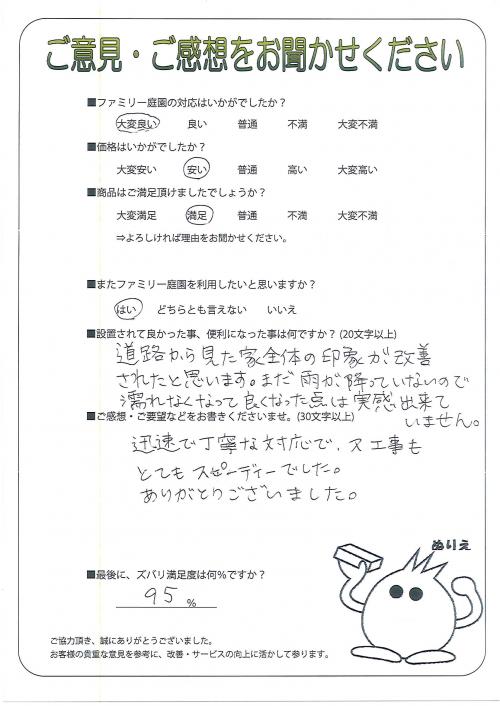 ご意見・ご感想をお聞かせください
■ファミリー庭園の対応はいかがでしたか？
大変良い 良い 普通 不満 大変不満
■価格はいかがでしたか？
大変安い 安い 普通 高い 大変高い
■商品はご満足頂けましたでしょうか？
大変満足 満足 普通 不満 大変不満
⇒よろしければ理由をお聞かせください。
■またファミリー庭園を利用したいと思いますか？
はい どちらとも言えない いいえ
■設置されて良かった事、便利になった事は何ですか？(20文字以上)
道路から見た家全体の印象が改善
されたと思います。まだ雨が降っていないので
濡れなくなって良くなった点は実感出来て
いません。
■ご感想・ご要望などをお書きくださいませ。(30文字以上)
迅速で丁寧な対応で、又工事も
とてもスピーディーでした。
ありがとうございました。
ぬりえ
■最後に、ズバリ満足度は何％ですか？
95 %
ご協力頂き、誠にありがとうございました。
お客様の貴重な意見を参考に、改善・サービスの向上に活かして参ります。